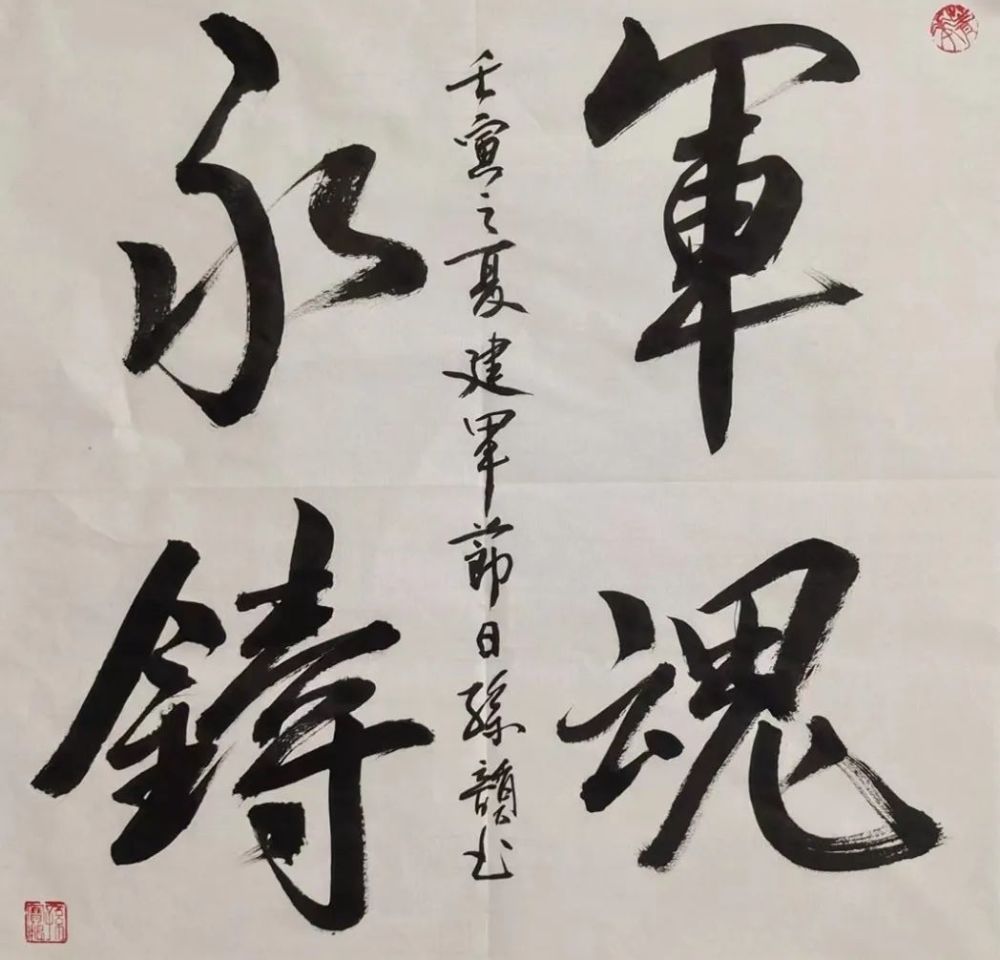 軍魂
永鑄
壬寅之夏建軍節日孫韻书